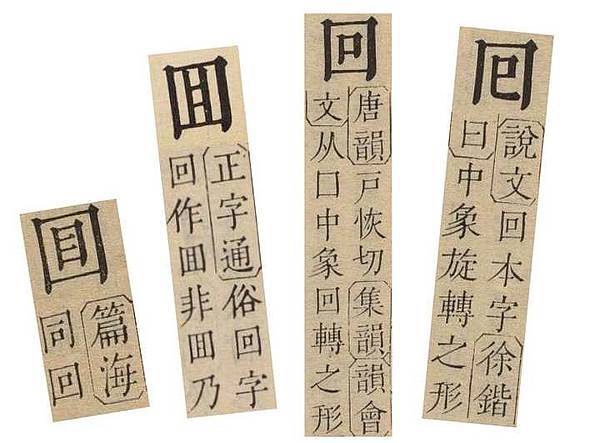 囘
說文回本字徐鍇
曰中象旋轉之形
回
唐韻戸恢切集韻韻會
文从囗中象回轉之形
囬
正字通俗回字
回作囬非囬乃
𡇌
篇海
同回